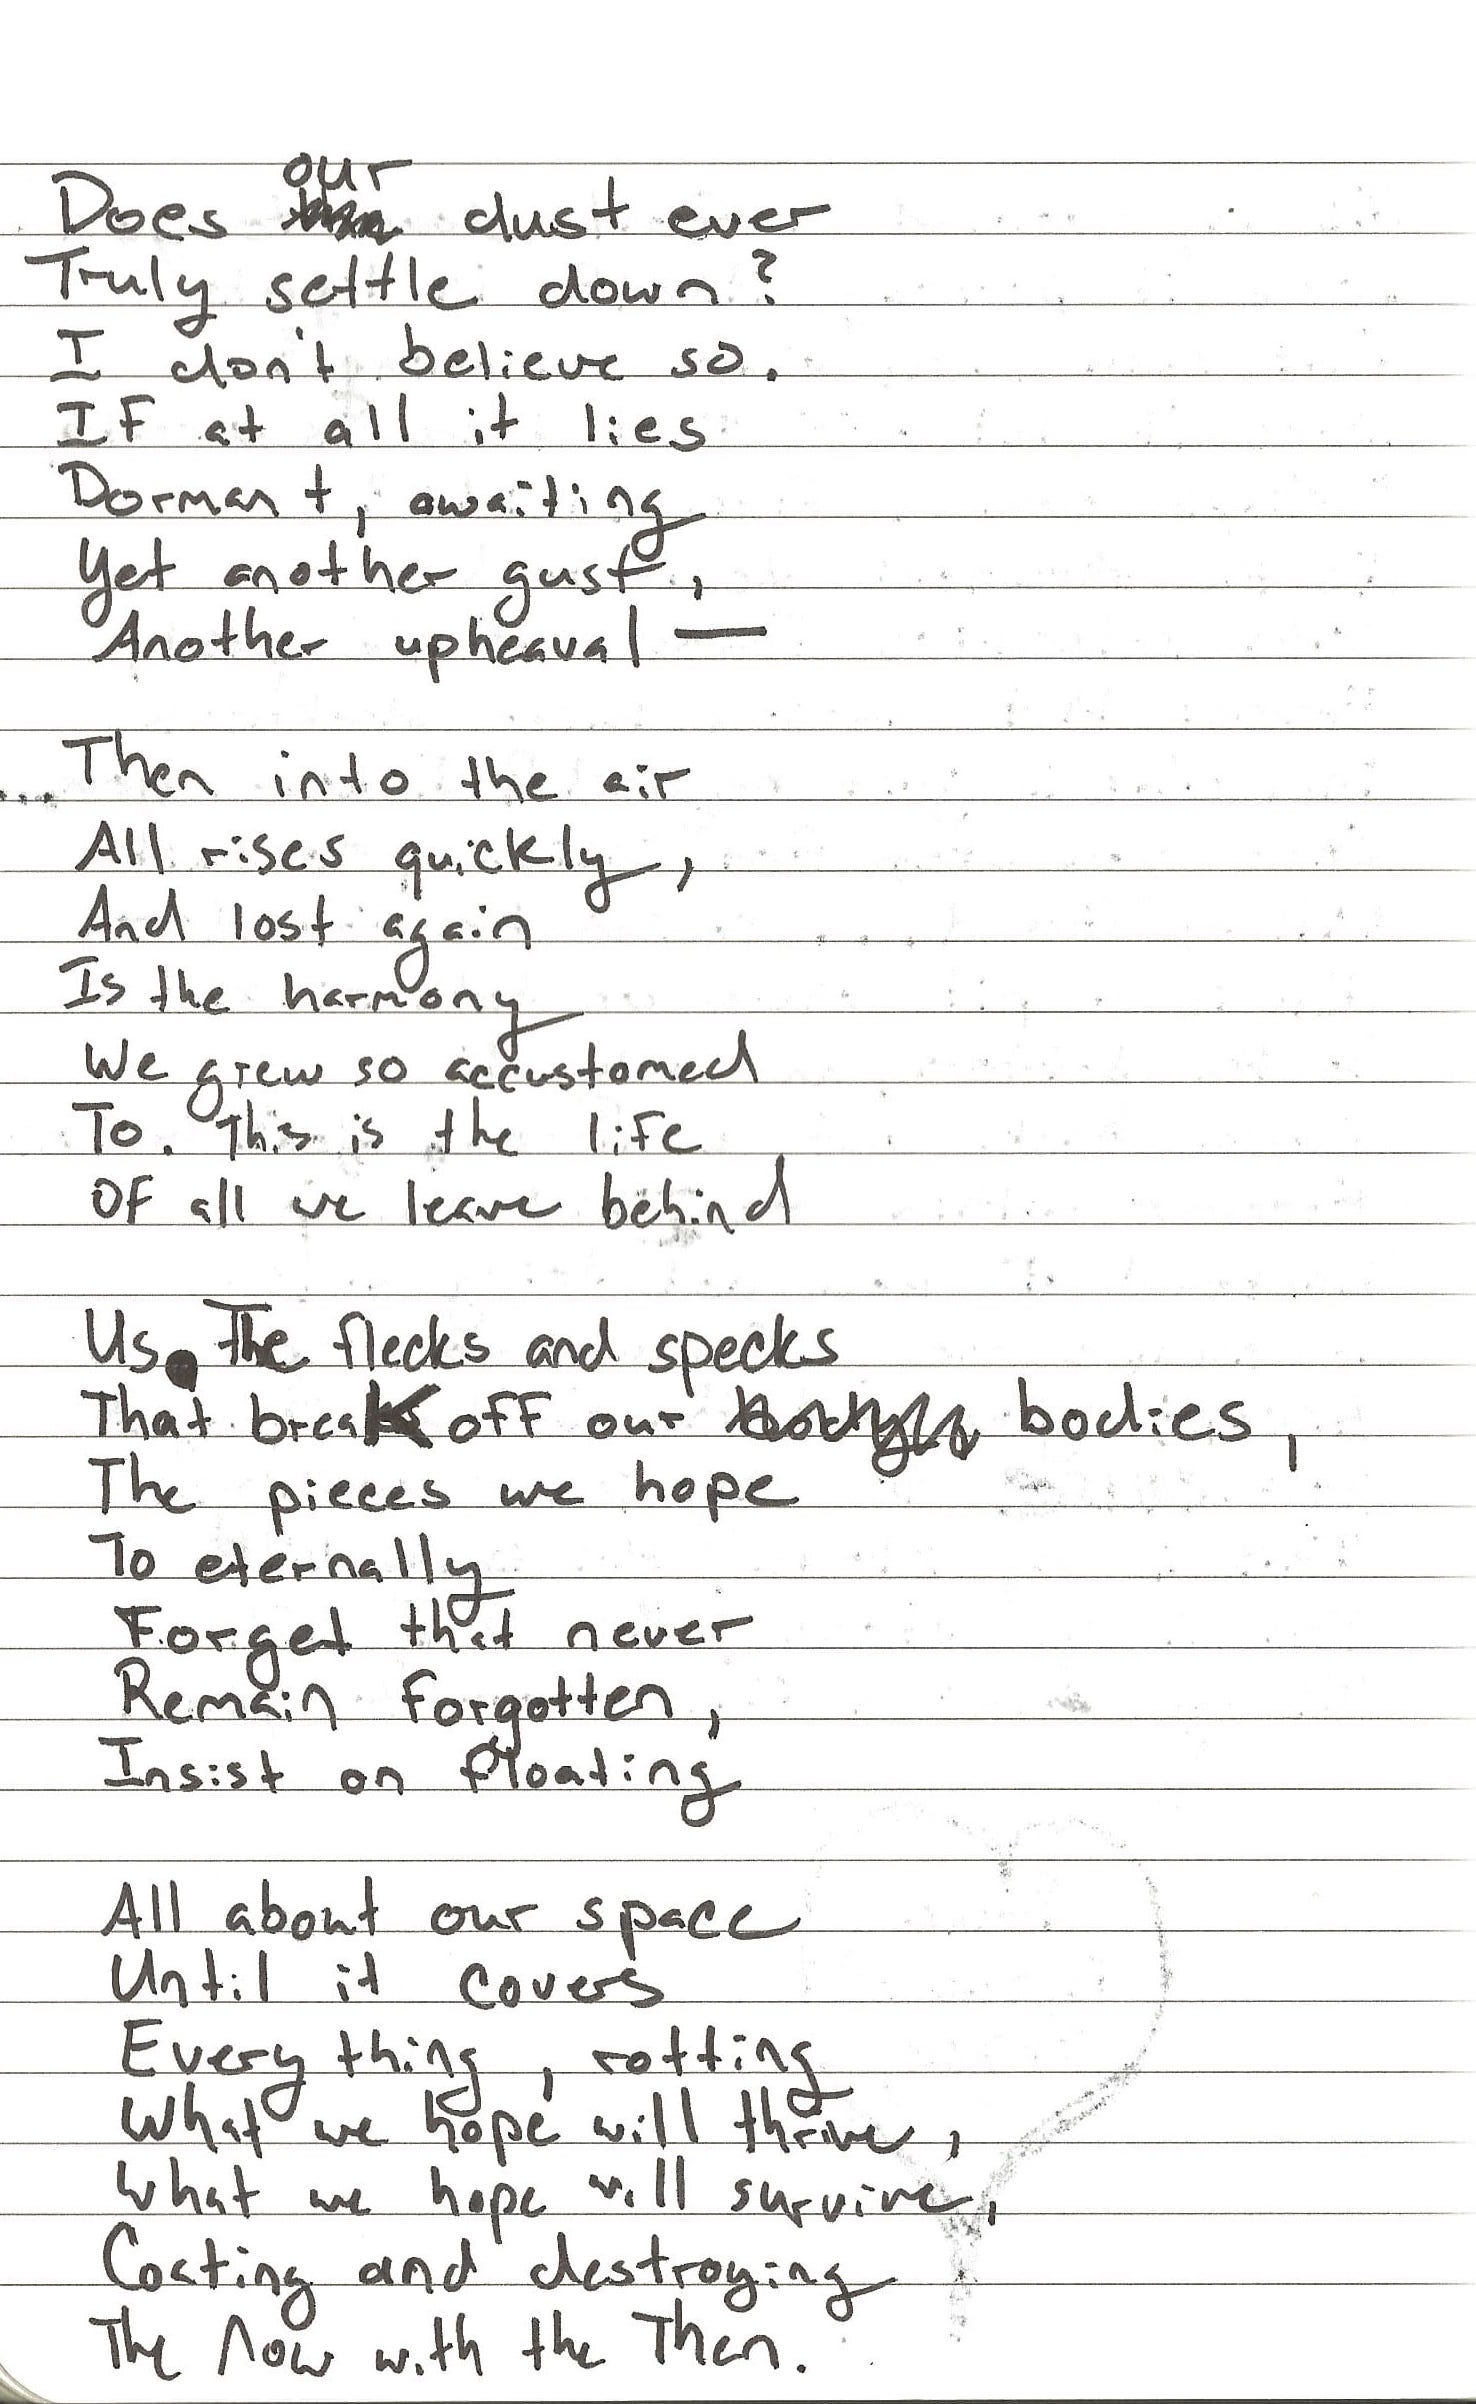 Does our dust ever
Truly settle down?
I don't believe so.
If at all it lies
Dormant, awaiting
Yet another gust,
Another upheaval —
... Then into the air
All rises quickly,
And lost again
Is the harmony
We grew so accustomed
To. This is the life
Of all we leave behind
Us. The flecks and specks
That break off our bodies,
The pieces we hope
To eternally
Forget that never
Remain forgotten,
Insist on floating
All about our space
Until it covers
Everything, rotting
What we hope will thrive,
What we hope will survive,
Coating and destroying
The Now with the Then.